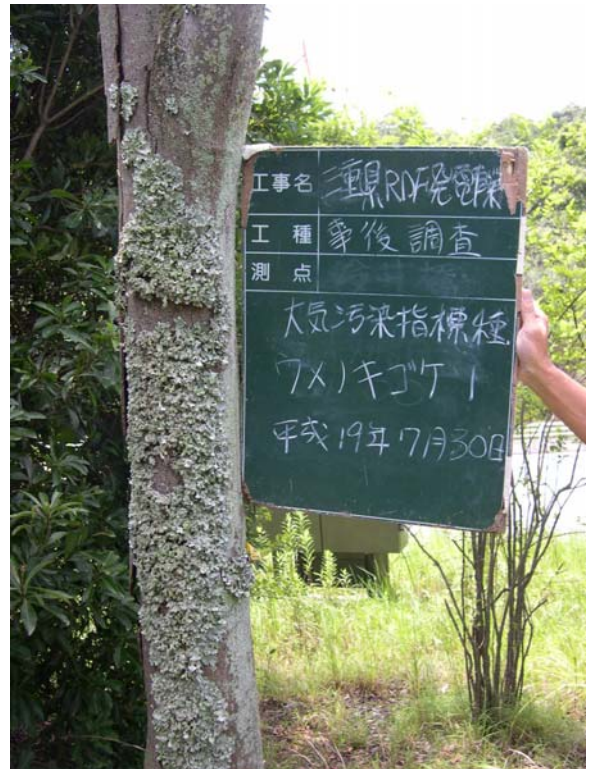 工事名 三重県RDF発電事業
工種 事後調査
測点
大気汚染指標種
ウメノキゴケ 1
平成19年7月30日